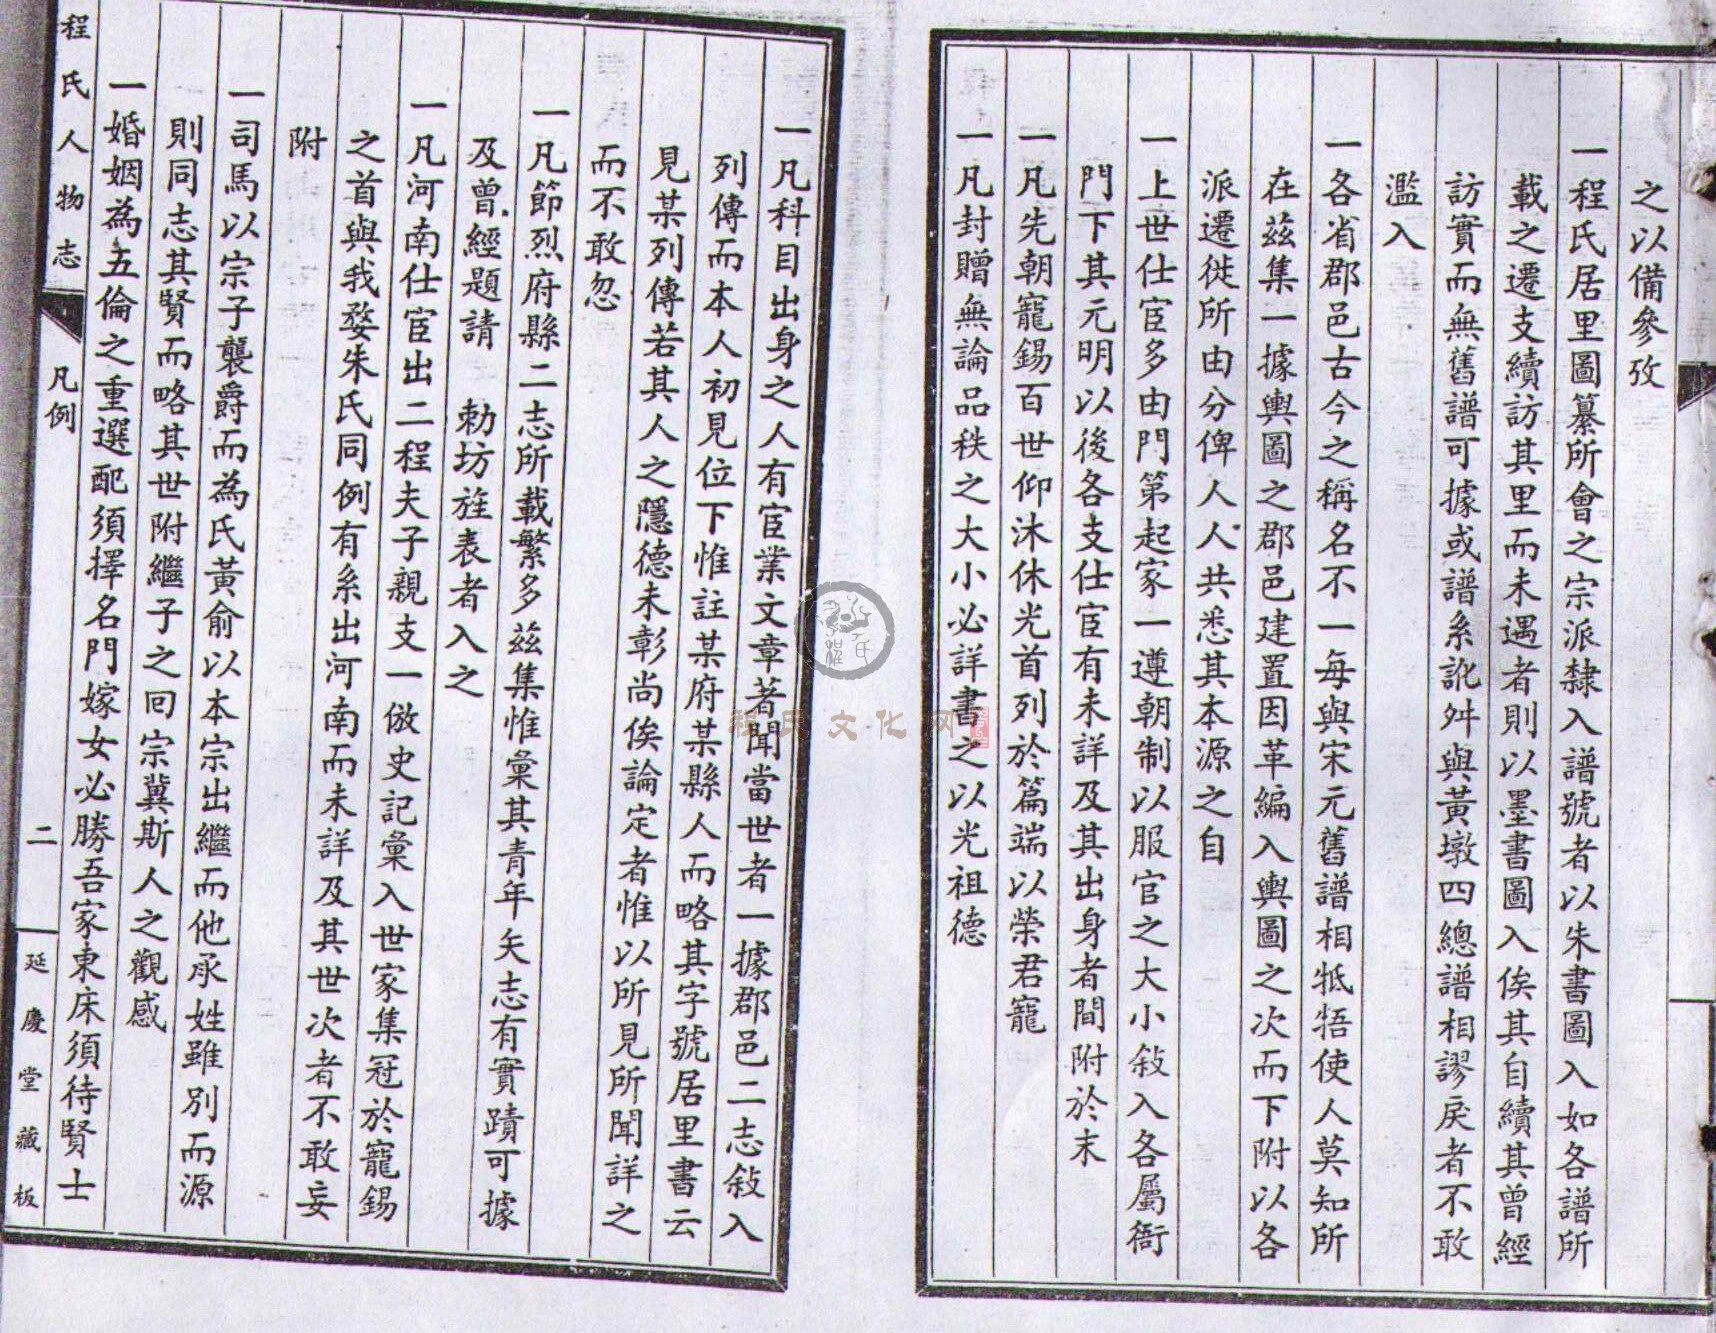 之以備參攷
一程氏居里圖纂所會之宗派隸入譜號者以朱書圖入如各譜所
載之遷支續訪其里而未遇者則以墨書圖入俟其自續其曾經
訪實而無舊譜可據或譜系訛舛與黃墩四總譜相謬戾者不敢
濫入
一各省郡邑古今之稱名不一每與宋元舊譜相牴牾使人莫知所
在茲集一據輿圖之郡邑建置因革編入輿圖之次而下附以各
派遷徙所由分俾人人共悉其本源之自
一上世仕宦多由門第起家一遵朝制以服官之大小敍入各屬衙
門下其元明以後各支仕宦有未詳及其出身者間附於末
一凡先朝寵錫百世仰沐休光首列於篇端以榮君寵
一凡封贈無論品秩之大小必詳書之以光祖德
一凡科目出身之人有宦業文章著聞當世者一據郡邑二志敍入
列傳而本人初見位下惟註某府某縣人而略其字號居里書云
見某列傳若其人之隱德未彰尚俟論定者惟以所見所聞詳之
而不敢忽
一凡節烈府縣二志所載繁多茲集惟彙其青年矢志有實蹟可據
及曾經題請　勅坊旌表者入之
一凡河南仕宦出二程夫子親支一倣史記彙入世家集冠於寵錫
之首與我婺朱氏同例有系出河南而未詳及其世次者不敢妄
附
一司馬以宗子襲爵而為氏黃俞以本宗出繼而他承姓雖別而源
則同志其賢而略其世附繼子之回宗冀斯人之觀感
一婚姻為五倫之重選配須擇名門嫁女必勝吾家東床須待賢士
程氏人物志　凡例　二　延慶堂藏板
程氏文化网
程氏